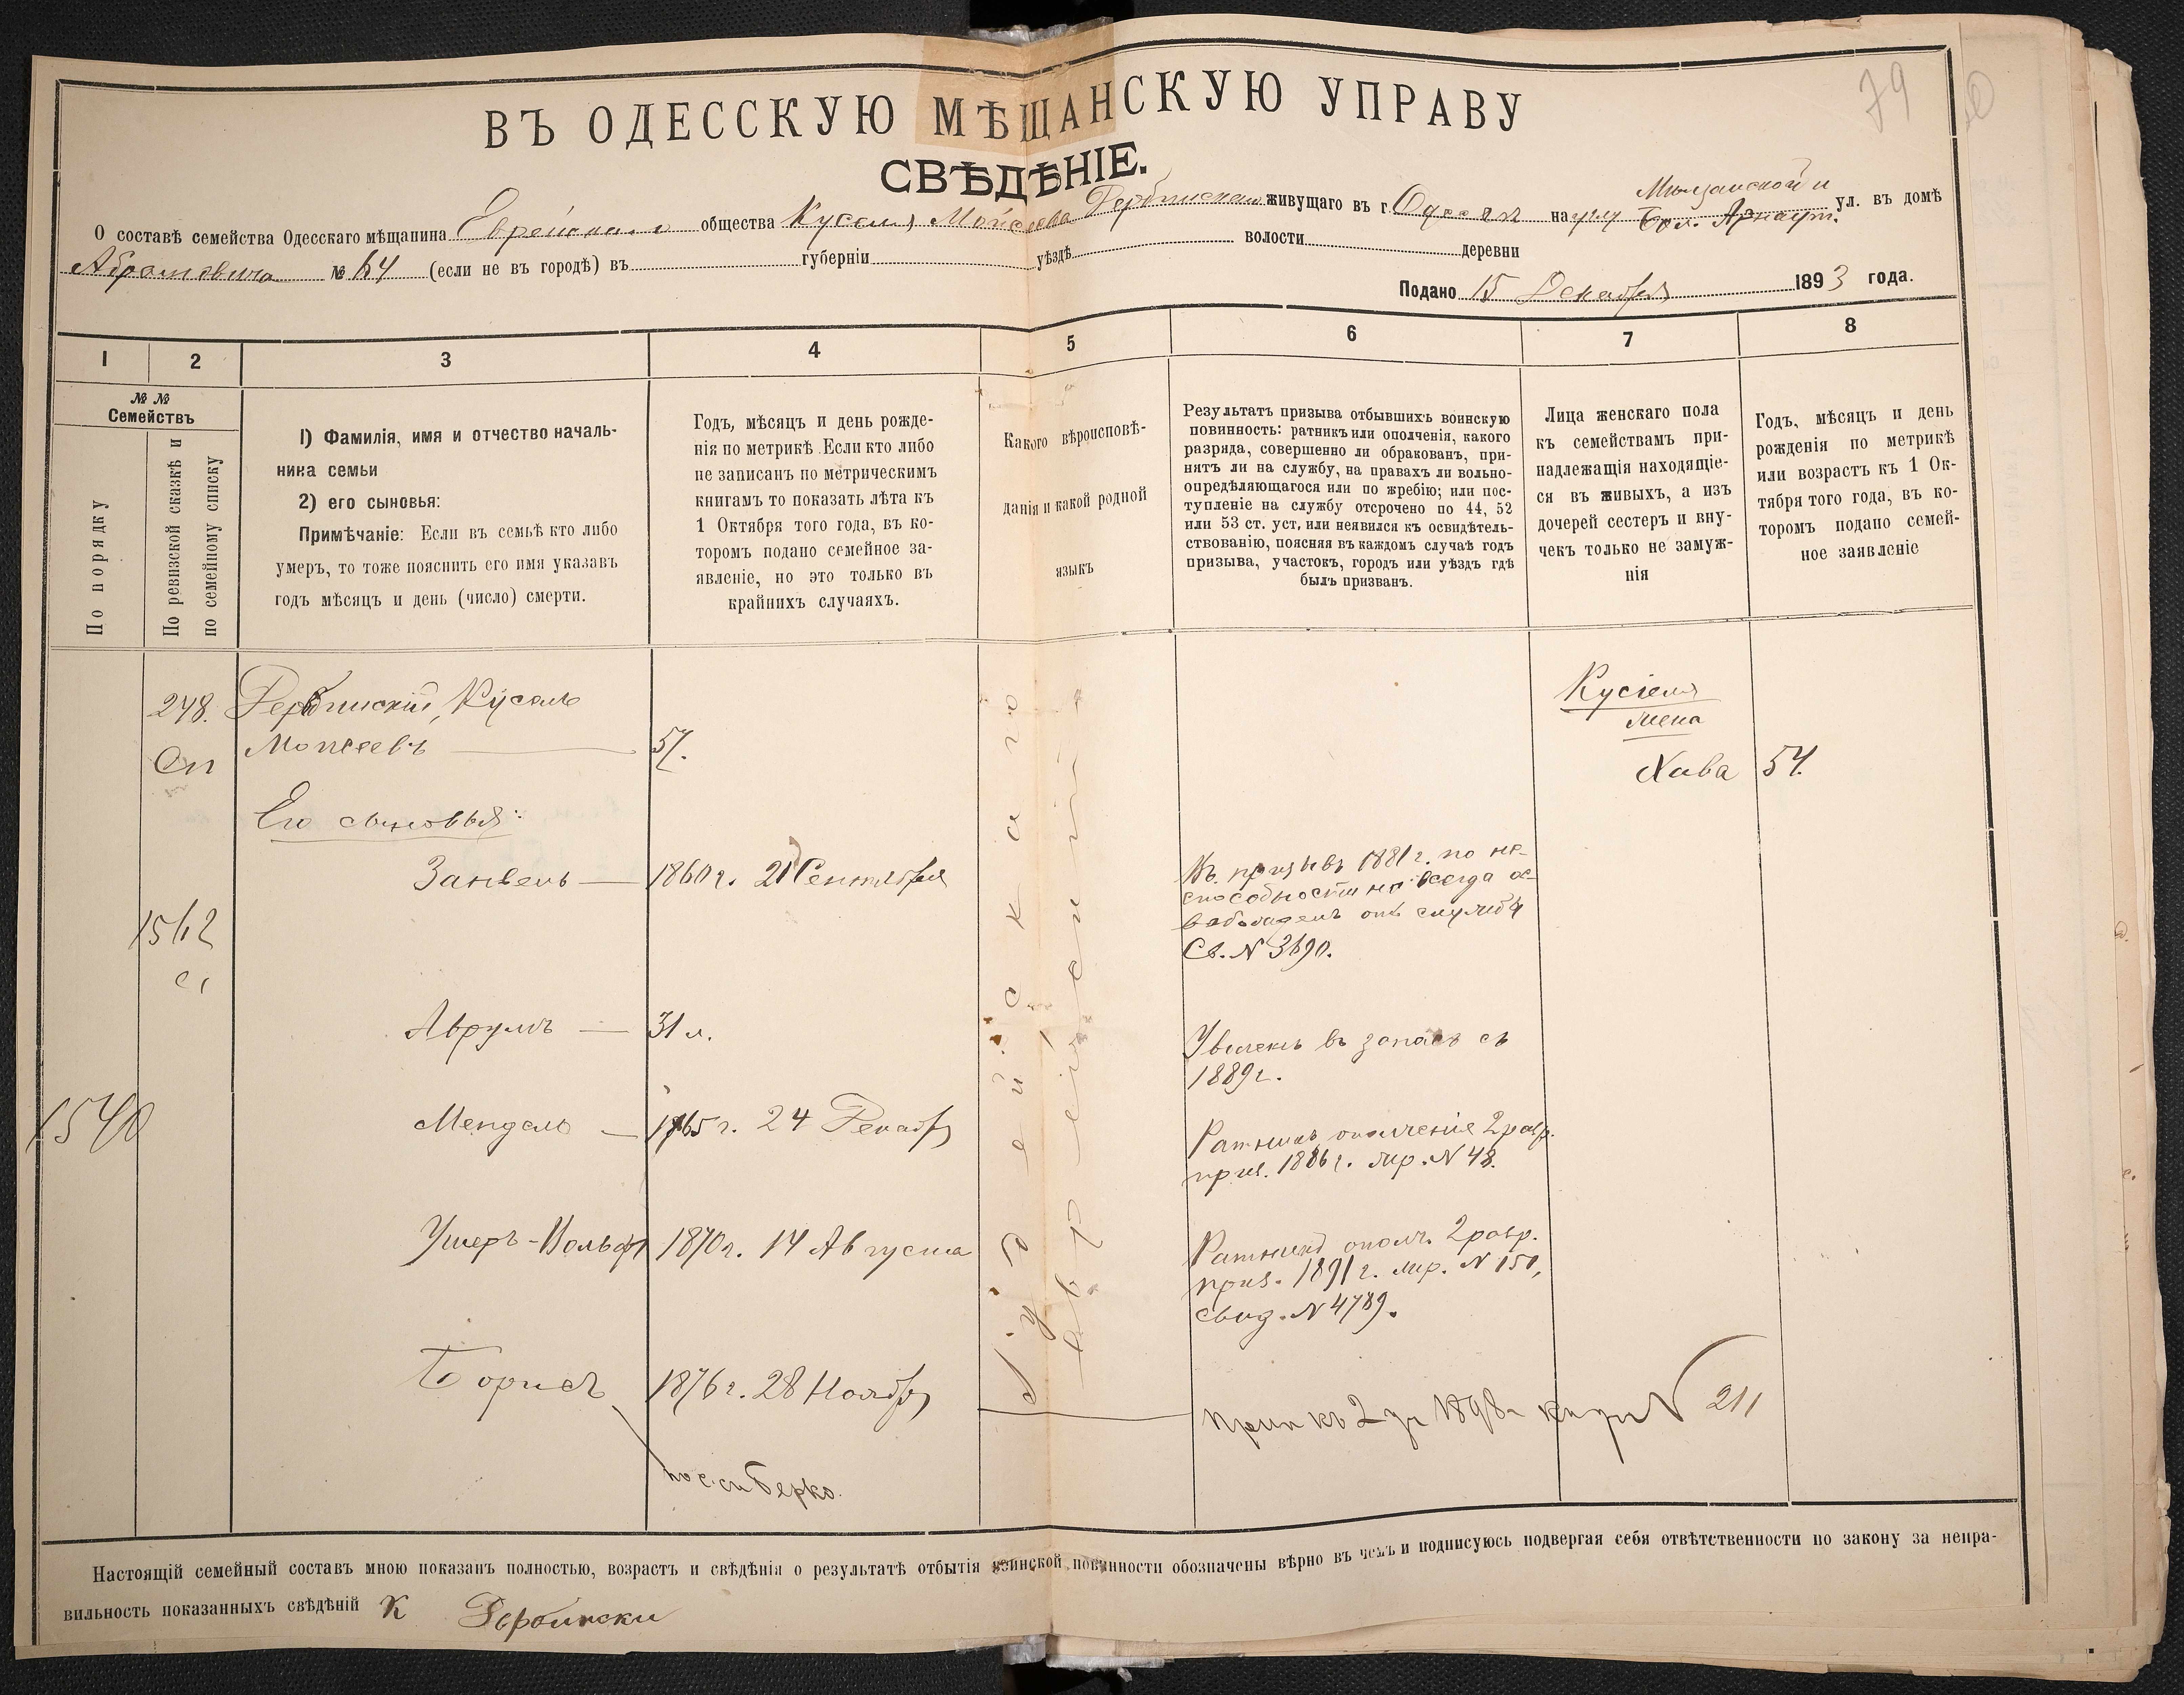 79
ВЪ ОДЕССКУЮ МѢЩАНСКУЮ УПРАВУ
СВѢДѢНІЕ.
О составѣ семейства Одесскаго мѣщанина Еврейскаго общества Куселя Мойсеева живущаго въ г. Одессѣ на углу Мѣщанской и Бол. Арнаут. ул. въ домѣ
Абрамовича № 64 (если не въ городѣ) въ губерніи уѣздѣ волости деревни
Подано 15 Декабря 1893 года.
1 2 3 4 5 6 7 8
№ №
Семействъ
По порядку
По ревизской сказкѣ и
по семейному списку
1) Фамилія, имя и отчество началь-
ника семьи
2) его сыновья:
Примѣчаніе: Если въ семьѣ кто либо
умеръ, то тоже пояснить его имя указавъ
годъ мѣсяцъ и день (число) смерти.
Годъ, мѣсяцъ и день рожде-
нія по метрикѣ. Если кто либо
не записанъ по метрическимъ
книгамъ то показать лѣта къ
1 Октября того года, въ ко-
торомъ подано семейное за-
явленіе, но это только въ
крайнихъ случаяхъ.
Какого вѣроисповѣ-
данія и какой родной
языкъ
Результатъ призыва отбывшихъ воинскую
повинность: ратникъ или ополченія, какого
разряда, совершенно ли обракованъ, при-
нятъ ли на службу, на правахъ ли вольно-
опредѣляющагося или по жребію; или пос-
тупленіе на службу отсрочено по 44, 52
или 53 ст. уст, или неявился къ освидѣтель-
ствованію, поясняя въ каждомъ случаѣ годъ
призыва, участокъ, городъ или уѣздъ гдѣ
былъ призванъ.
Лица женскаго пола
къ семействамъ при-
надлежащія находящіе-
ся въ живыхъ, а изъ
дочерей сестеръ и вну-
чекъ только не замуж-
нія
Годъ, мѣсяцъ и день
рожденія по метрикѣ
или возрастъ къ 1 Ок-
тября того года, въ ко-
торомъ подано семей-
ное заявленіе
248. Дербинскій, Кусель
Сп Мойсеевъ 57.
Кусіеля
жена
Хава 54.
Іудейскаго
еврейскій
Его сыновья:
Занвель — 1860 г. 21 Сентября
Въ призывъ 1881 г. по не-
способности навсегда ос-
вобожденъ отъ службы
Св. N 3690.
1562
Аврумъ — 31 л.
Уволенъ въ запасъ съ
1889 г.
1540
Мендель — 1865 г. 24 Декабр
Ратникъ ополченія 2 разр.
приз. 1886 г. жр. N 48.
Ушеръ-Вольфъ 1870 г. 14 Августа
Ратникъ ополч. 2 разр.
приз. 1891 г. жр. N 150,
свид. N 4789.
Борисъ 1876 г. 28 Ноябр
N 211
Берко.
Настоящій семейный составъ мною показанъ полностью, возрастъ и свѣдѣнія о результатѣ отбытія воинской повинности обозначены вѣрно въ чемъ и подписуюсь подвергая себя отвѣтственности по закону за непра-
вильность показанныхъ свѣдѣній К Дербински